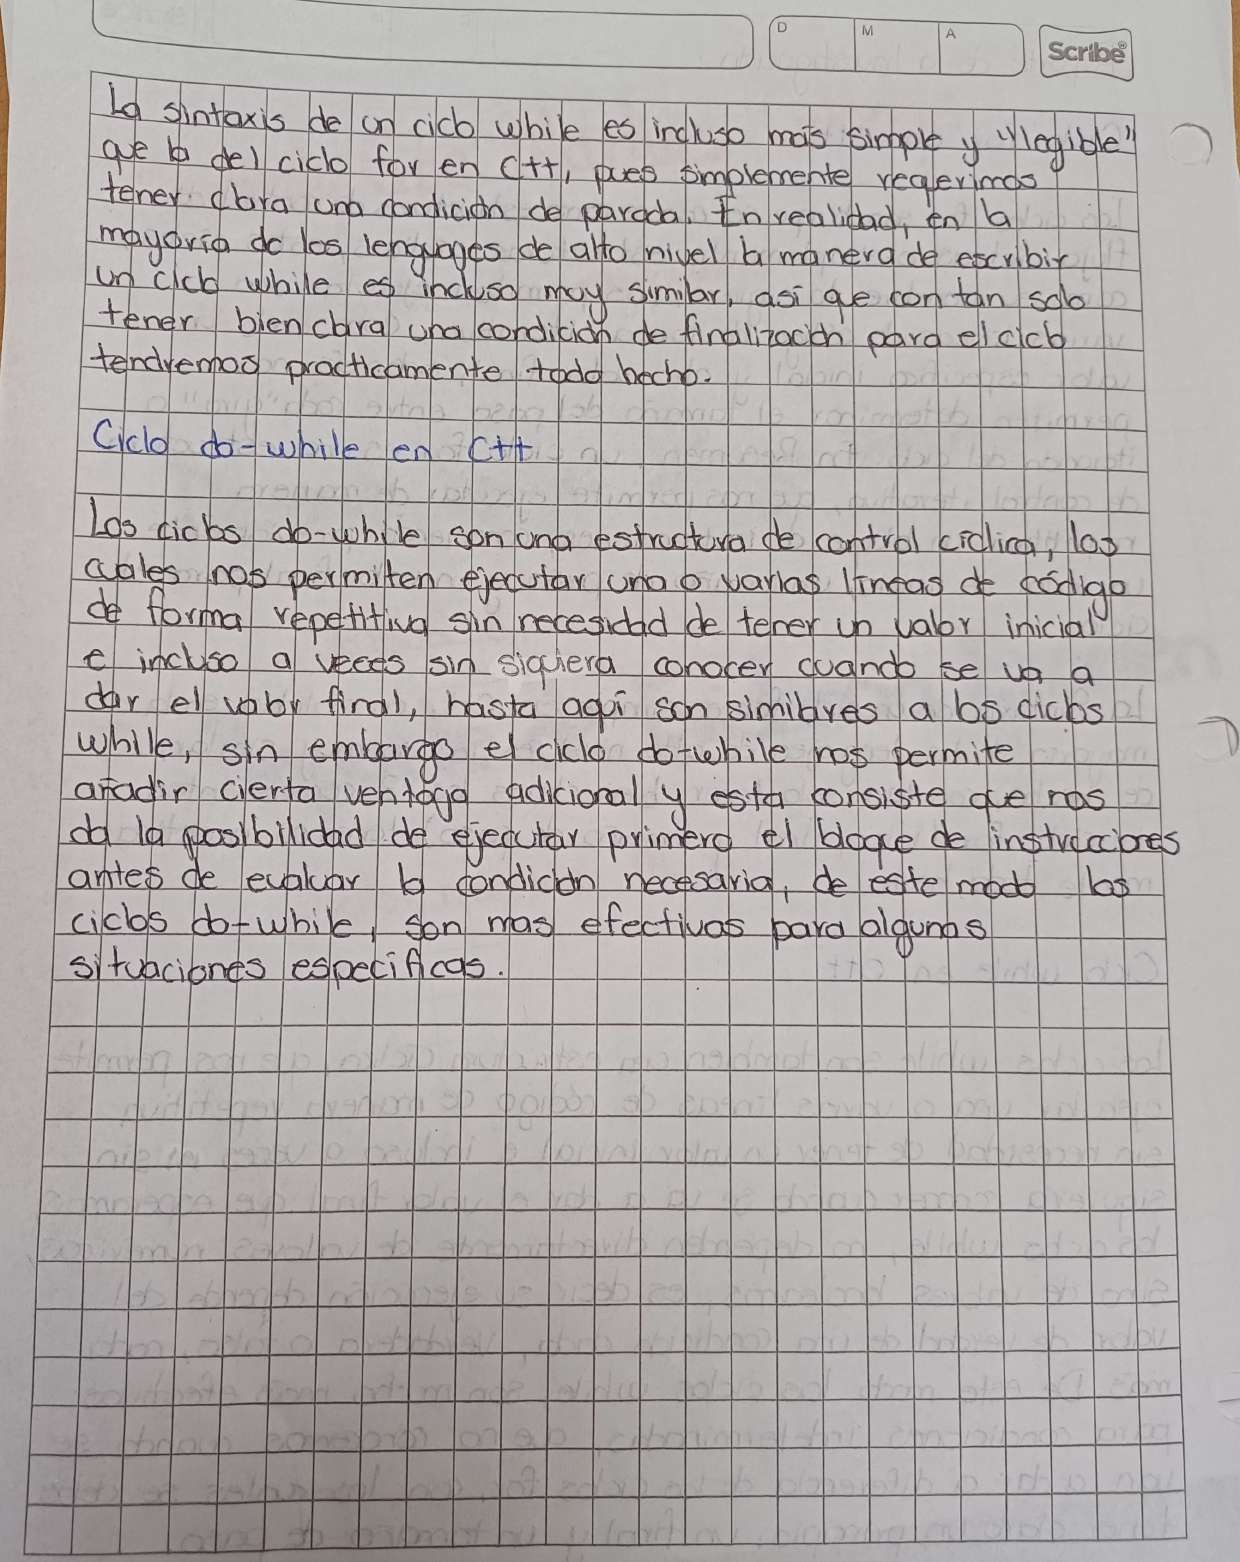 D M A Scribe
La sintaxis de un ciclo while es incluso más simple y "legible"
que la del ciclo for en C++, pues simplemente requerimos
tener clara una condición de parada. En realidad, en la
mayoria de los lenguages de alto nivel la manera de escribir
un ciclo while es incluso muy similar, asi que con tan solo
tener bien clara una condición de finalización para el ciclo
tendremos practicamente todo hecho.
Ciclo do-while en C++
Los ciclos do-while son una estructura de control ciclica, los
cuales nos permiten ejecutar una o varias lineas de código
de forma repetitiva sin necesidad de tener un valor inicial
e incluso a veces sin siquiera conocer cuando se va a
dar el valor final, hasta aqui son similares a los ciclos
while, sin embargo el ciclo do-while nos permite
añadir cierta ventaja adicional y esta consiste que nos
da la posibilidad de ejecutar primero el bloque de instrucciones
antes de evaluar la condición necesaria, de este modo los
ciclos do-while, son mas efectivos para algunas
situaciones especificas.